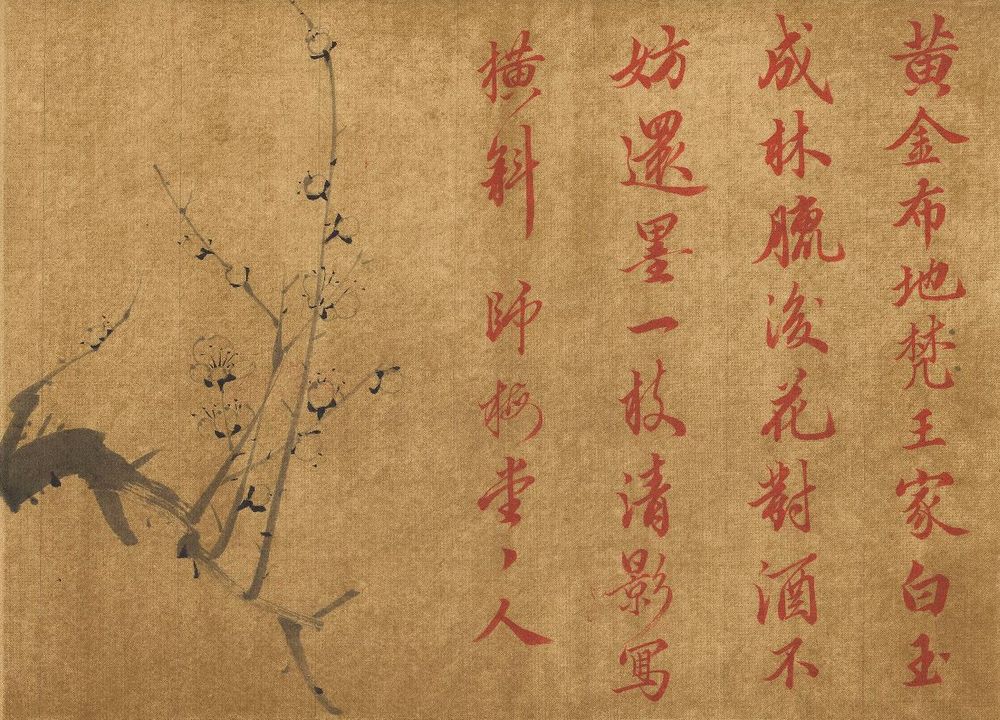 黃金布地梵王家白玉
成林臘後花對酒不
妨還墨一枝清影寫
橫斜 師梅堂丶人